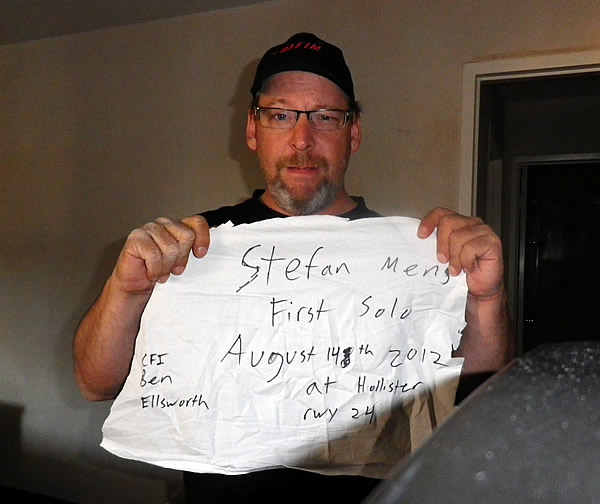 Stefan Meng
First Solo
August 14th 2012
at Hollister
rwy 24
CFI
Ben
Ellsworth